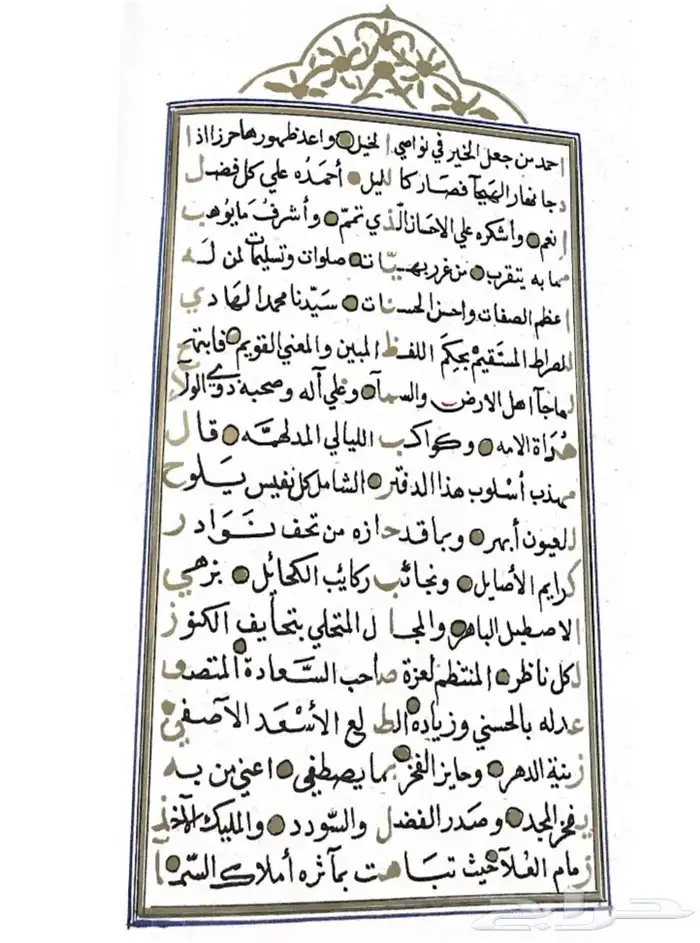 احمد من جعل الخير في نواصي الخيل واعد ظهورها حرزا اذا
دجا نهار الهيجآ فصار كالليل أحمَدُه علي كل فضل
انعم وأشكره علي الاحسان الذي تمم وأشرفُ ما يُوهب
مما به يتقرب من غرر بهيّاته صلوات وتسليمات لمن له
اعظم الصفات واحسن الحسنات سَيّدنا محمد الهادي
للصراط المستقيم بحِكَم اللفظ المبين والمعني القويم فابتهج
لما جآ اهل الارض والسمآ وعلي آله وصحبه ذوي الولآ
هُدَاة الامه وكواكب الليالي المدلهمَّه قال
مهذب أسلوب هذا الدفتر الشامل كل نفيس يَلوح
للعيون أبهر وبما قد حازه من تحف نَوَادر
كرايم الأصايل ونجائب ركايب الكحائل بزهي
الاصطبل الباهر والمجال المتحلي بتحايف الكنوز
لكل ناظر المنتظم لعزة صاحب السَّعادة المتصف
عدله بالحسني وزيادة الطالع الأسْعَد الآصفي
زينة الدهر وحايز الفخر بما يصطفي اعني من به
يفخر المجد وصدر الفضل والسّودد والمليك الآخذ
زمام العُلآ حيث تبَاهت بمآثره أملاك السّمآ
حراج